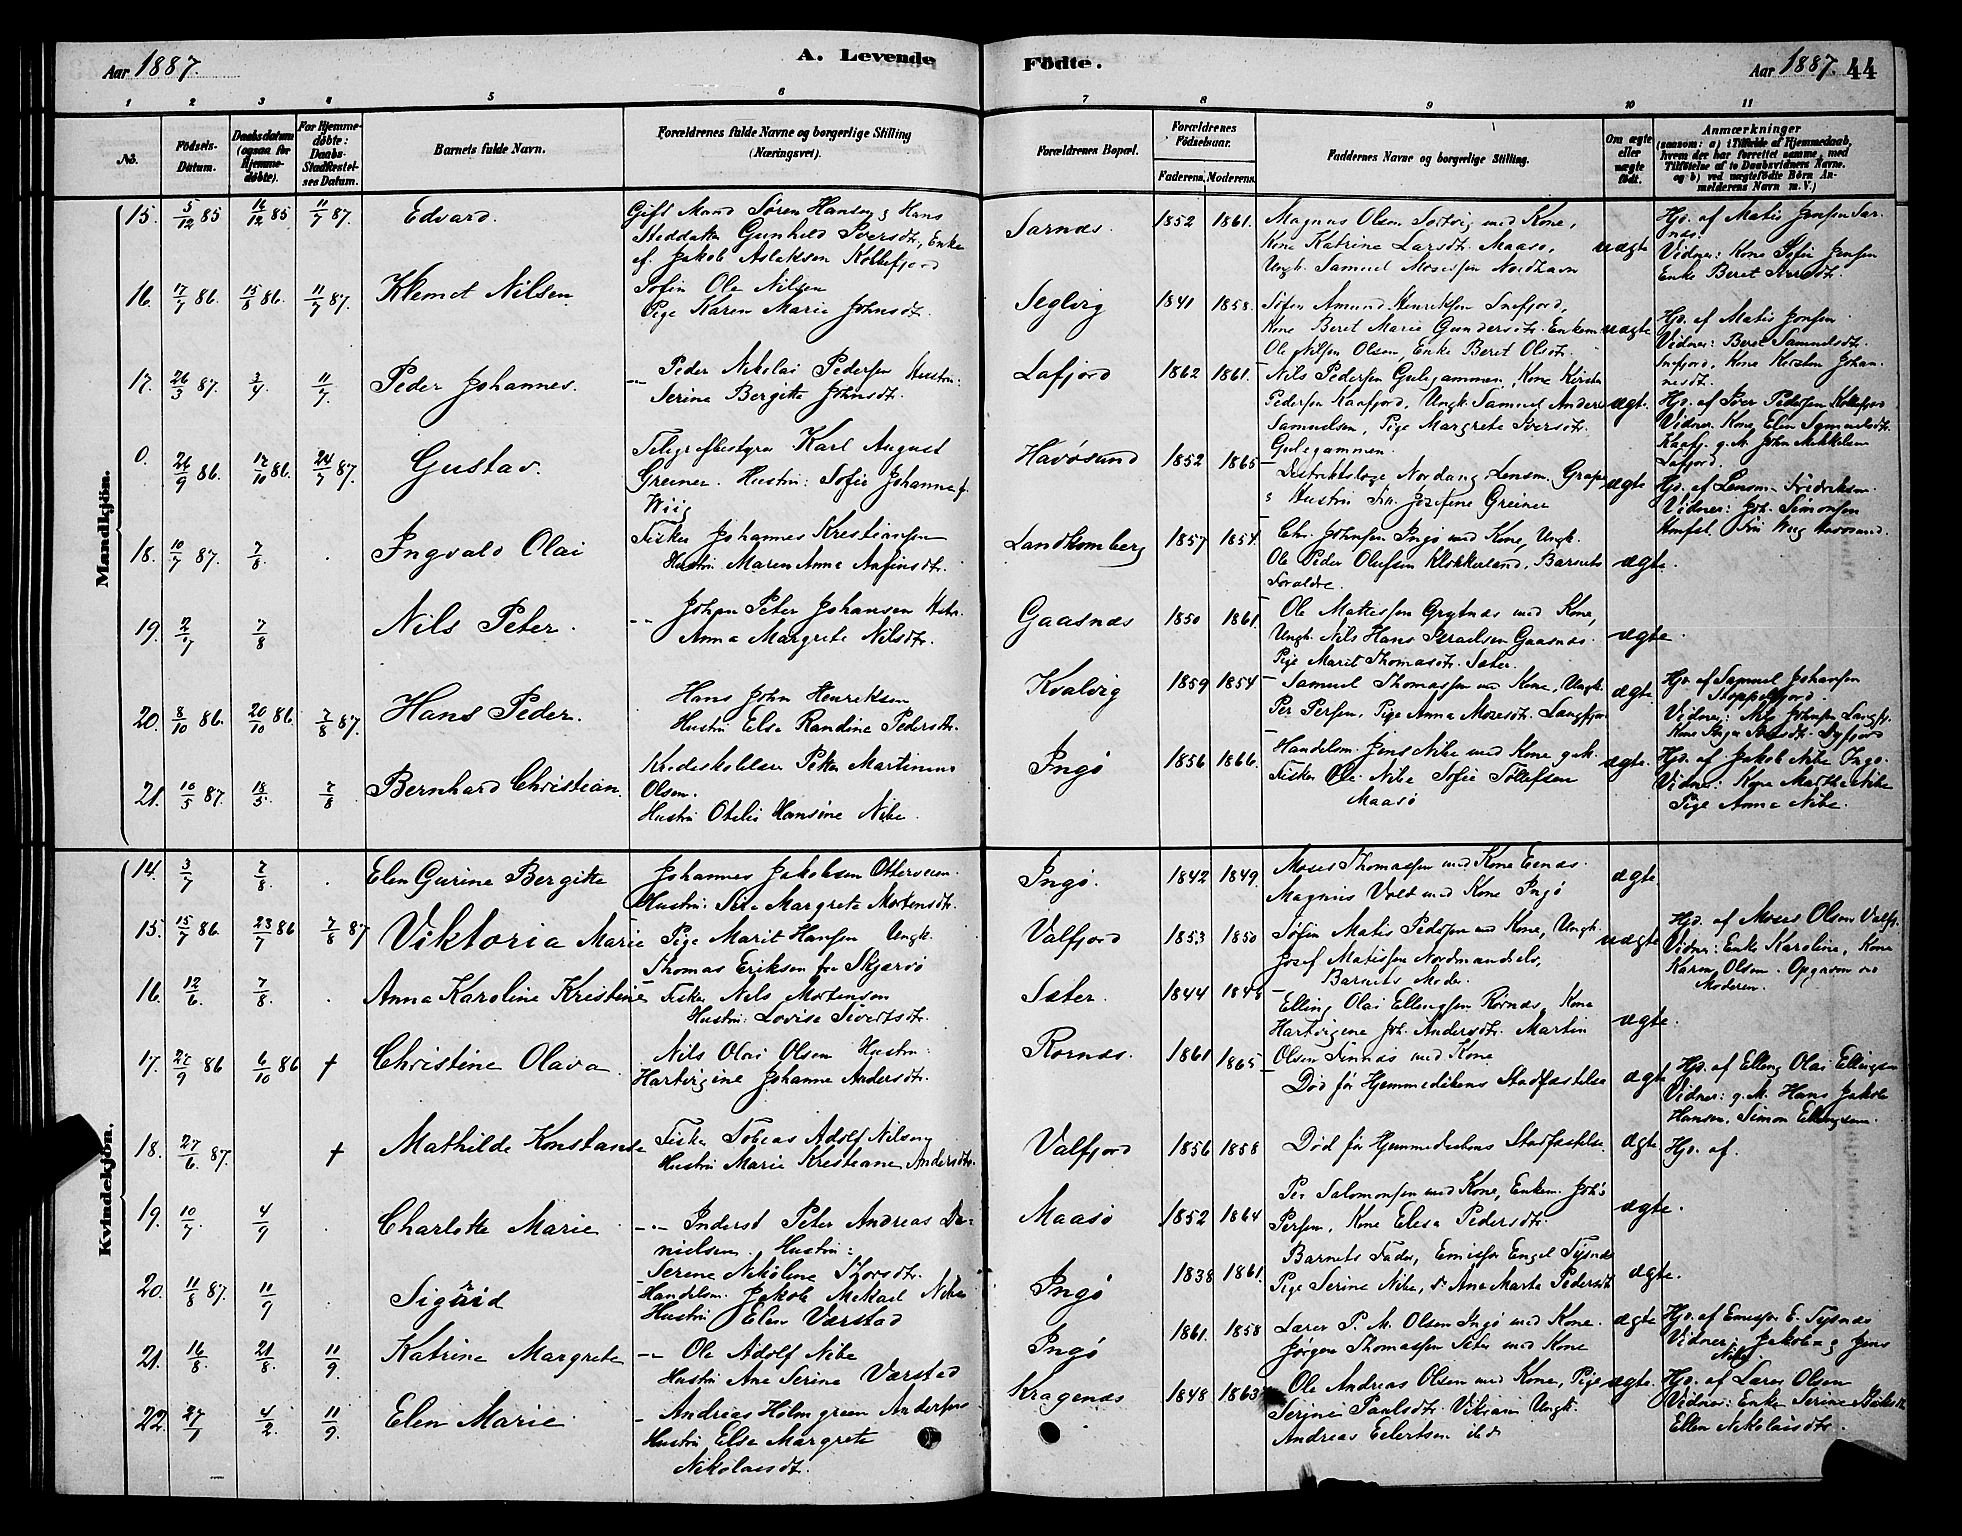 Aar 1887.
A. Levende Födte.
Aar 1887. 44
1 2 3 4 5 6 7 8 9 10 11
No.
Födsels-Datum.
Daabsdatum (ogsaa for Hjemme-döbte).
For Hjemme-döbte: Daabs-Stadfæstel-ses Datum.
Barnets fulde Navn.
Forældrenes fulde Navne og borgerlige Stilling (Næringsvei).
Forældrenes Bopæl.
Forældrenes Födselsaar.
Faderens. Moderens.
Faddernes Navne og borgerlige Stilling.
Om ægte eller uægte födt.
Anmærkninger
(saasom: a) i Tilfælde af Hjemmedaab, hvem der har forrettet samme, med Tilföielse af to Daabsvidners Navne, og b) ved uægtefödte Börn Anmelderens Navn m. V.)
Mandkjön.
15. 5/12 85 16/12 85 11/7 87. Edvard.
Gift Mand Søren Hansen, Hans
Steddatter Gunhild Iversdt, Enke
af Jakob Aslaksen Kollefjord
Sarnæs. 1852 1861.
Magnus Olsen med Kone,
Kone Katrine Larsdt. Maasø,
Ungk. Samuel Mosessen
uægte
Hjd. af Matis Jensen Sar-
næs.
Vidner: Kone Sofie Jensen
Enke Beret
16. 17/7 86. 15/8 86. 11/7 87. Klemet Nilsen
Søfin Ole Nilsen
Pige Karen Marie Johnsdt.
Seglvig 1841 1858.
Søfin Amund Henriksen Snefjord,
Kone Beret Marie Gundersdt. Enkem.
Ole Nilsen Olsen, Enke Beret Olsdt.
uægte
Hjd. af Matis Jensen
Vidner: Beret Samuelsdt.
Snefjord, Kone Kirsten Johan-
nesdt.
17. 26/3 87. 3/4 11/7 Peder Johannes.
-"- Peder Nikolai Pedersen Hustru:
Serine Bergitte Johnsdt.
Lafjord 1862 1861.
Nils Pedersen Gulegammen, Kone Kirsten
Pedersen Kaafjord, Ungk. Samuel Anders
Samuelsen, Pige Margrete Iversdt.
Gulegammen.
ægte.
Hjd. af Iver Pedersen Kollefjord
Vidner: Kone Elen Sammelsdt.
Kaafj. g. M. John Mikkelsen
Lafjord.
0. 26/9 86. 17/10 86. 24/7 87. Gustav.
Telegrafbestyrer Karl August
Greiner. Hustru: Sofie Johanne f.
Wiig
Havøsund 1852 1865
Distriktslæge Nordang Lensm.
Hustru Frk. Josefine Greiner
ægte
Hjd. af Lensm. Fredriksen
Vidner: Joh. Simonsen
Frk. Wiig Havøsund.
18. 10/7 87. 7/8 . Ingvald Olai
Fisker Johannes Kristiansen
Hustru Maren Anna Anfinsdt.
1857 1854.
Chr. Johnsen Ingø med Kone, Ungk.
Ole Peder Olufsen Klokkerland, Barnets
Forældre.
ægte.
19. 2/7 7/8 Nils Peter.
-"- Johan Peter Johansen Hustr.
Anna Margrete Nilsdt.
Gaasnæs 1850 1861.
Ole Matissen Grytnæs med Kone,
Ungk. Nils Hans Israelsen Gaasnæs.
Pige Marit Thomasdt. Sæter.
ægte.
20. 8/10 86. 20/10 86. 7/8 87. Hans Peder.
Hans John Henriksen
Hustru Else Randine Pedersdt.
Kvalvig 1859 1854
Samuel Thomassen med Kone, Ungk.
Per Persen, Pige Anna Mosesdt. Langfjor
ægte.
Hjd. af Samuel Johansen
Stoppelfjord
Vidner: Nils Johnsen Langfj.
21. 10/5 87. 18/5. 7/8 Bernhard Christian.
Kredsskolelærer Peter Martinus
Olsen.
Hustru Otelie Hansine Nibe.
Ingø 1856 1866.
Handelsm. Jens Nibe med Kone g. M.
Fisker Ole Nibe Sofie Tollefsen
Maasø
ægte.
Hjd. af Jakob Nibe Ingø.
Vidner: Kone Marthe Nibe
Pige Anna Nibe.
Kvindekjön.
14. 3/7 7/8. . Elen Gurine Bergitte
Johannes Jakobsen
Hustru: Margrete Mortensdt.
Ingø. 1842 1849.
Moses Thomassen med Kone
Magnus Vold med Kone Ingø
ægte.
15. 15/7 86. 23/7 86 7/8 87 Viktoria Marie
Pige Marit Hansen Ungk.
Thomas Eriksen fra Skjærsø
Valfjord 1853 1850
Søfin Matis Pedersen med Kone, Ungk.
Josef Matissen
Barnets Moder.
uægte.
Hjd. af Moses Olsen Valfj.
Vidner: Enke Karoline, Kone
Karen Olsen. Opgaven ved
Moderen.
16. 12/6. 7/8. . Anna Karoline Kristine
Fisker Nils Mortensen
Hustru: Lovise Sivertsdt.
Sæter. 1844 1848
Elling Olai Ellingsen Rørnæs, Kone
Hartvigine Joh. Andersdt. Martin
Olsen Finnæs med Kone
ægte.
17. 27/9 86 6/10 86 † Christine Olava
Nils Olai Olsen Hustru:
Hartvigine Johanne Andersdt.
Rørnæs. 1861 1865
Død før Hjemmedåbens Stadfæstelse
ægte
Hjd. af Elling Olai Ellingsen
Vidner: g. M. Hans Jakob
Hansen, Simon Ellingsen.
18. 27/6. 87. † Mathilde Konstanse
Fisker Tobias Adolf Nilsen
Hustru Marie Kristiane Andersdt.
Valfjord 1856 1858
Død før Hjemmedåbens Stadfæstelse.
ægte.
Hjd. af.
19. 10/7 4/9 . Charlotte Marie
-"- Inderst Peter Andreas Da-
nielsen. Hustru:
Serine Nikoline
Maasø 1852 1864
Per Salomonsen med Kone, Enkem. Joh's
Persen, Kone Elisa Pedersdt.
ægte.
20. 11/8 87. 11/9 . Sigrid
Handelsm. Jakob Mekael Nibe
Hustru Elen Værstad
Ingø 1838 1861.
Barnets Fader, Emissær Engel Tysnæs
Pige Serine Nibe, Ane Marta Pedersdt
ægte.
21. 16/8. 21/8. 11/9. Katrine Margrete
-"- Ole Adolf Nibe
Hustru Ane Serine Værstad
Ingø 1861. 1858
Lærer P. M. Olsen Ingø med Kone.
Jørgen Thomassen Sæter med Kone
ægte
Hjd. af Emissær E. Tysnæs
Vidner: Jakob og Jens
Nibe
22. 27/1 4/2 11/9 Elen Marie
Andreas Holmgreen Andersen
Hustru Else Margrete
Nikolaisdt.
Kragenæs 1848 1863
Ole Andreas Olsen med Kone, Pige
Serine Paulsdt. Ungk.
Andreas Eilertsen ibid
ægte.
Hjd. af Lærer Olsen
Vidner: Enken Serine
Ellen Nikolaisdtr.